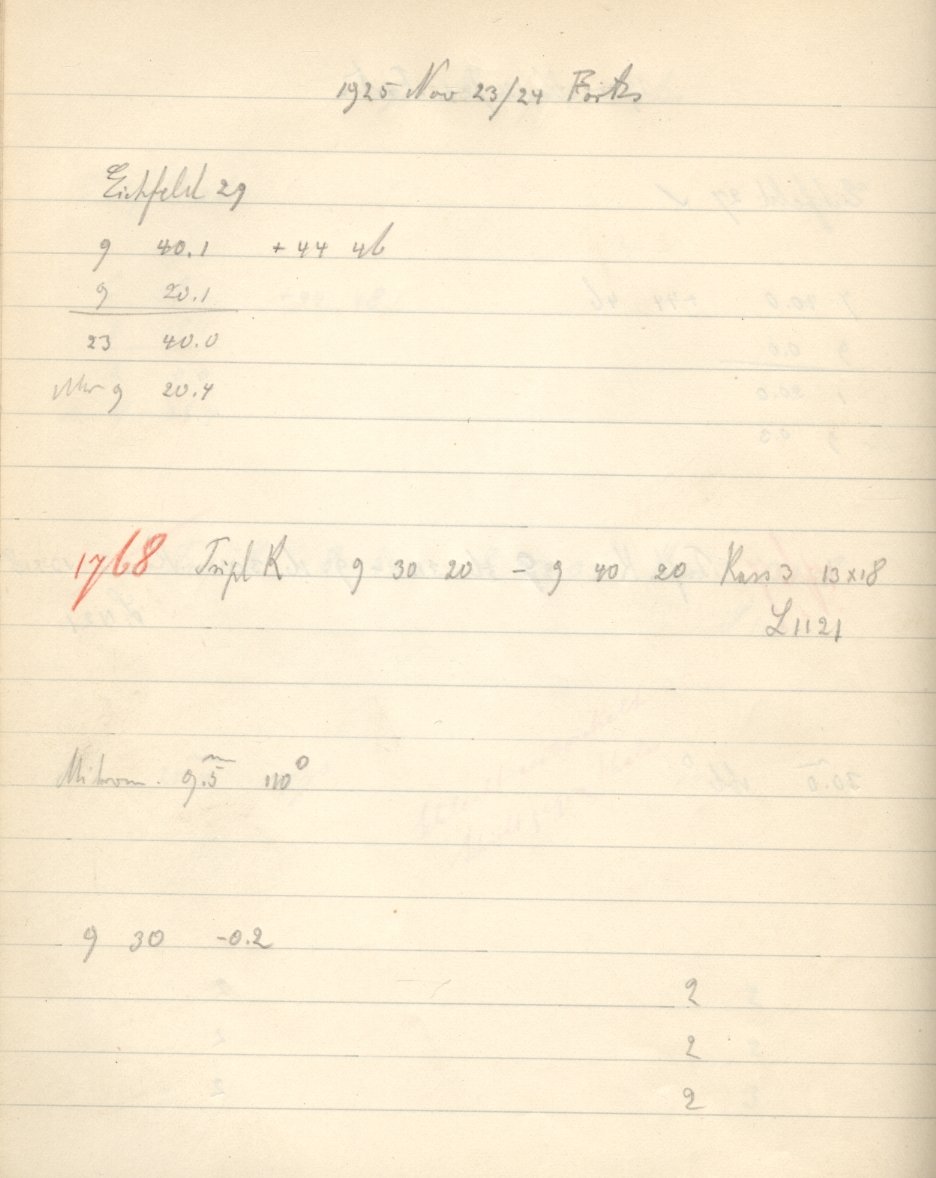 1925 Nov 23/24 Forts
Eichfeld 29
9 40.1 + 44 46
9 20.1
23 40.0
Uhr 9 20.4
1768 Tripl K 9 30 20 - 9 40 20 Kass 3 13x18
L 1121
Mikrom. 9.5 m 110°
9 30 -0.2
2
2
2